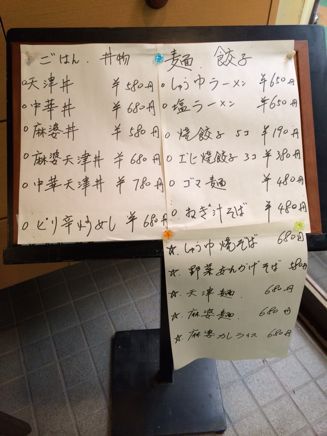 ごはん、丼物
○天津丼 ¥580円
○中華丼 ¥680円
○麻婆丼 ¥580円
○麻婆天津丼 ¥680円
○中華天津丼 ¥780円
○ピリ辛炒めし ¥680円
麺、餃子
○しょうゆラーメン ¥650円
○塩ラーメン ¥650円
○焼餃子 5コ ¥190円
○エビ焼餃子 3コ ¥380円
○ゴマ麺 ¥480円
○ねぎ汁そば ¥480円
☆しょうゆ焼そば 680円
☆野菜あんかけそば 580円
☆天津麺 680円
☆麻婆麺 680円
☆麻婆カレライス 680円